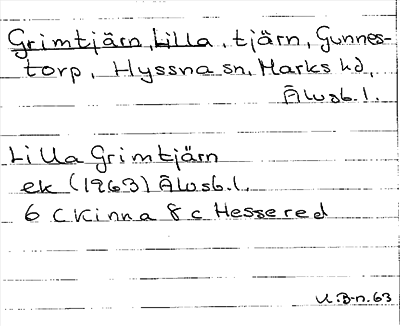 Grimtjärn, Lilla, tjärn, Gunnes-
torp, Hyssna sn, Marks hd,
Älvsb. l.
Lilla Grimtjärn
ek (1963) Älvsb. l.
6 c Kinna 8 c Hessered
U.B-n. 63